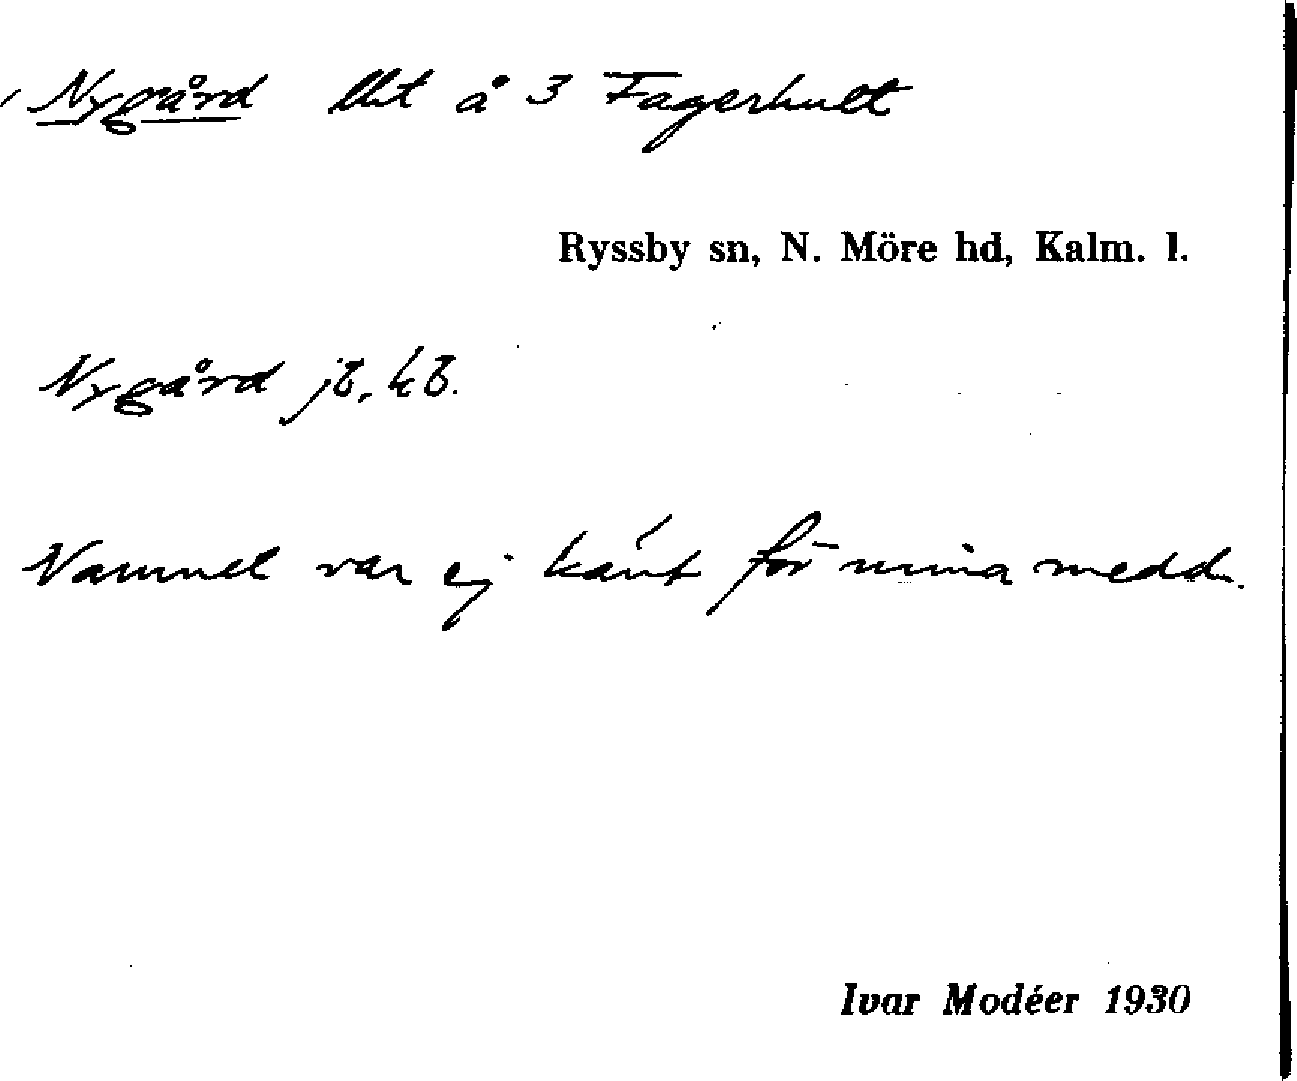 Nygård lht å 3 Fagerhult
Ryssby sn, N. Möre hd, Kalm. l.
Nygård jb, kb.
Namnet var ej känt för mina medd.
Ivar Modéer 1930